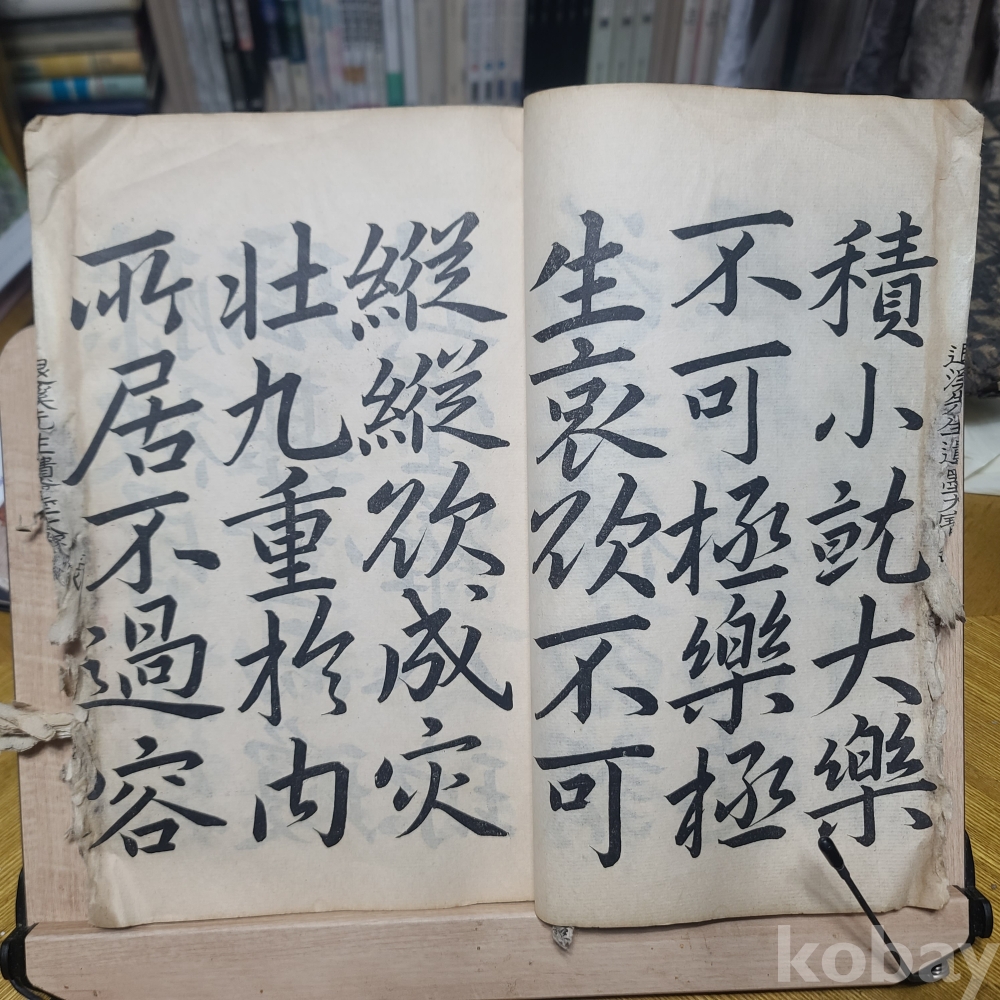 積小就大樂
不可極樂極
生哀欲不可
縱縱欲成灾
壯九重於內
所居不過容
退溪先生遺墨
kobay